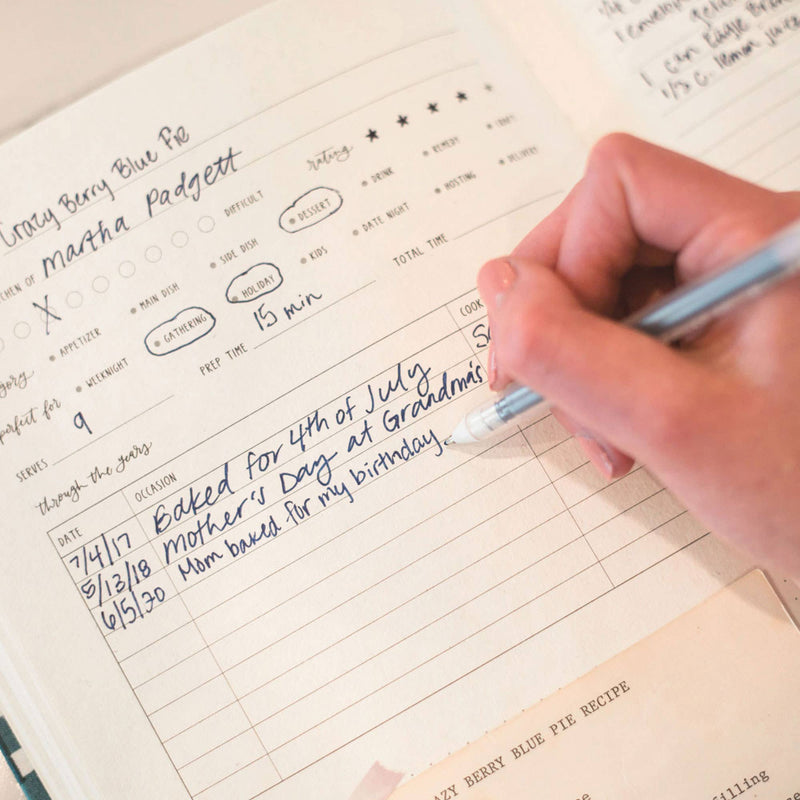 Crazy Berry Blue Pie
rating ★ ★ ★ ★ ★
CHEN OF Martha Padgett
X DIFFICULT
gory APPETIZER MAIN DISH SIDE DISH DESSERT DRINK REMEDY CRAFT
perfect for WEEKNIGHT GATHERING HOLIDAY KIDS DATE NIGHT HOSTING DELIVERY
SERVES 9 PREP TIME 15 min TOTAL TIME
through the years
DATE OCCASION COOK
7/4/17 Baked for 4th of July
5/13/18 Mother's Day at Grandma's
6/5/20 Mom baked for my birthday
1 can Eagle Brand
1/3 C. lemon juice
AZY BERRY BLUE PIE RECIPE
filling